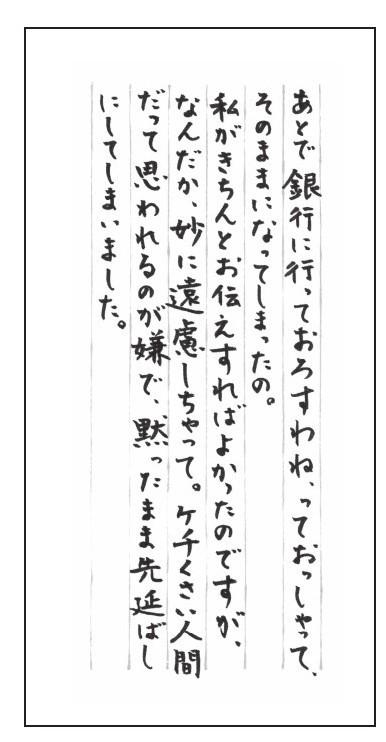 あとで銀行に行っておろすわね、っておっしゃって、
そのままになってしまったの。
私がきちんとお伝えすればよかったのですが、
なんだか、妙に遠慮しちゃって。ケチくさい人間
だって思われるのが嫌で、黙ったまま先延ばし
にしてしまいました。